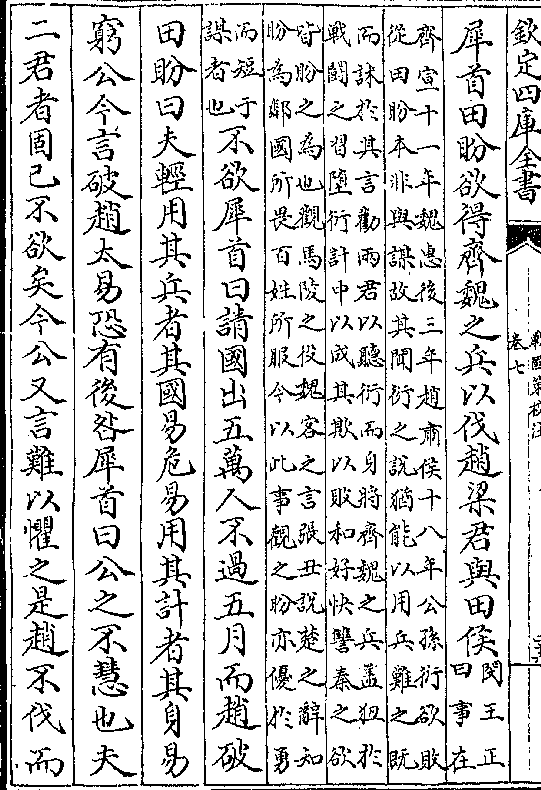 欽定四庫全書
戰國策校注
卷七
犀首田盼欲得齊魏之兵以伐趙梁君與田侯
閔王正
曰事在
齊宣十一年魏惠後三年趙肅侯十八年公孫衍欲敗
從田盼本非與謀故其聞衍之說猶能以用兵難之既
而訹於其言勸兩君以聽衍而身將齊魏之兵蓋狃於
戰鬭之習墮衍計中以成其欺以敗和好快讐秦之欲
皆盼之為也觀馬陵之役魏客之言張丑說楚之辭知
盼為鄰國所畏百姓所服今以此事觀之盼亦優於勇
而短于
謀者也
不欲犀首曰請國出五萬人不過五月而趙破
田盼曰夫輕用其兵者其國易危易用其計者其身易
窮公今言破趙太易恐有後咎犀首曰公之不慧也夫
二君者固已不欲矣今公又言難以懼之是趙不伐而